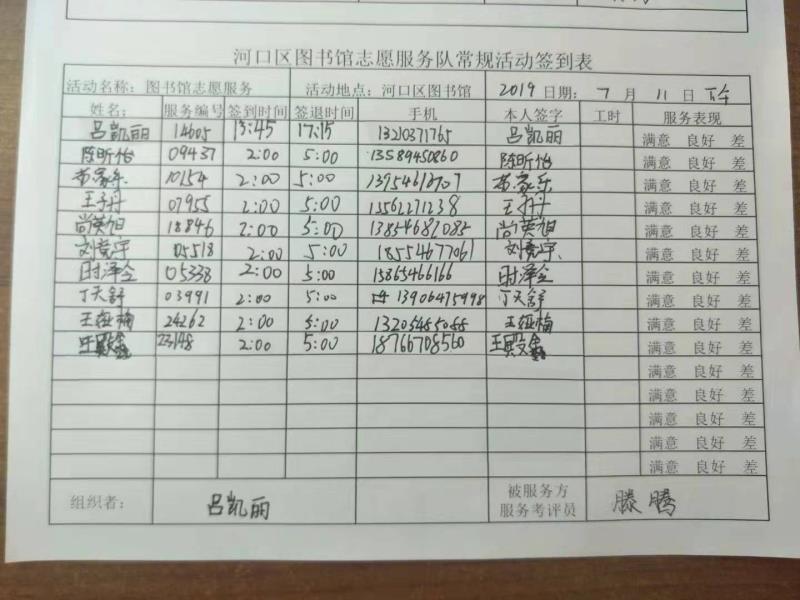 河口区图书馆志愿服务队常规活动签到表
活动名称：图书馆志愿服务 活动地点：河口区图书馆 2019 日期： 7 月 11 日 下午
姓名： 服务编号 签到时间 签退时间 手机 本人签字 工时 服务表现
吕凯丽 14605 13:45 17:15 13210371765 吕凯丽 满意 良好 差
陈昕怡 09437 2:00 5:00 13589450860 陈昕怡 满意 良好 差
10154 2:00 5:00 满意 良好 差
王子丹 07955 2:00 5:00 13562271238 王子丹 满意 良好 差
尚英旭 18846 2:00 5:00 尚英旭 满意 良好 差
刘竞宇 05518 2:00 5:00 18554677061 刘竞宇 满意 良好 差
时泽全 05338 2:00 5:00 15865466166 时泽全 满意 良好 差
丁天舒 03991 2:00 5:00 13906475998 丁天舒 满意 良好 差
24262 2:00 5:00 满意 良好 差
23148 2:00 5:00 18766708560 满意 良好 差
满意 良好 差
满意 良好 差
满意 良好 差
满意 良好 差
满意 良好 差
组织者： 吕凯丽 被服务方
服务考评员 滕腾